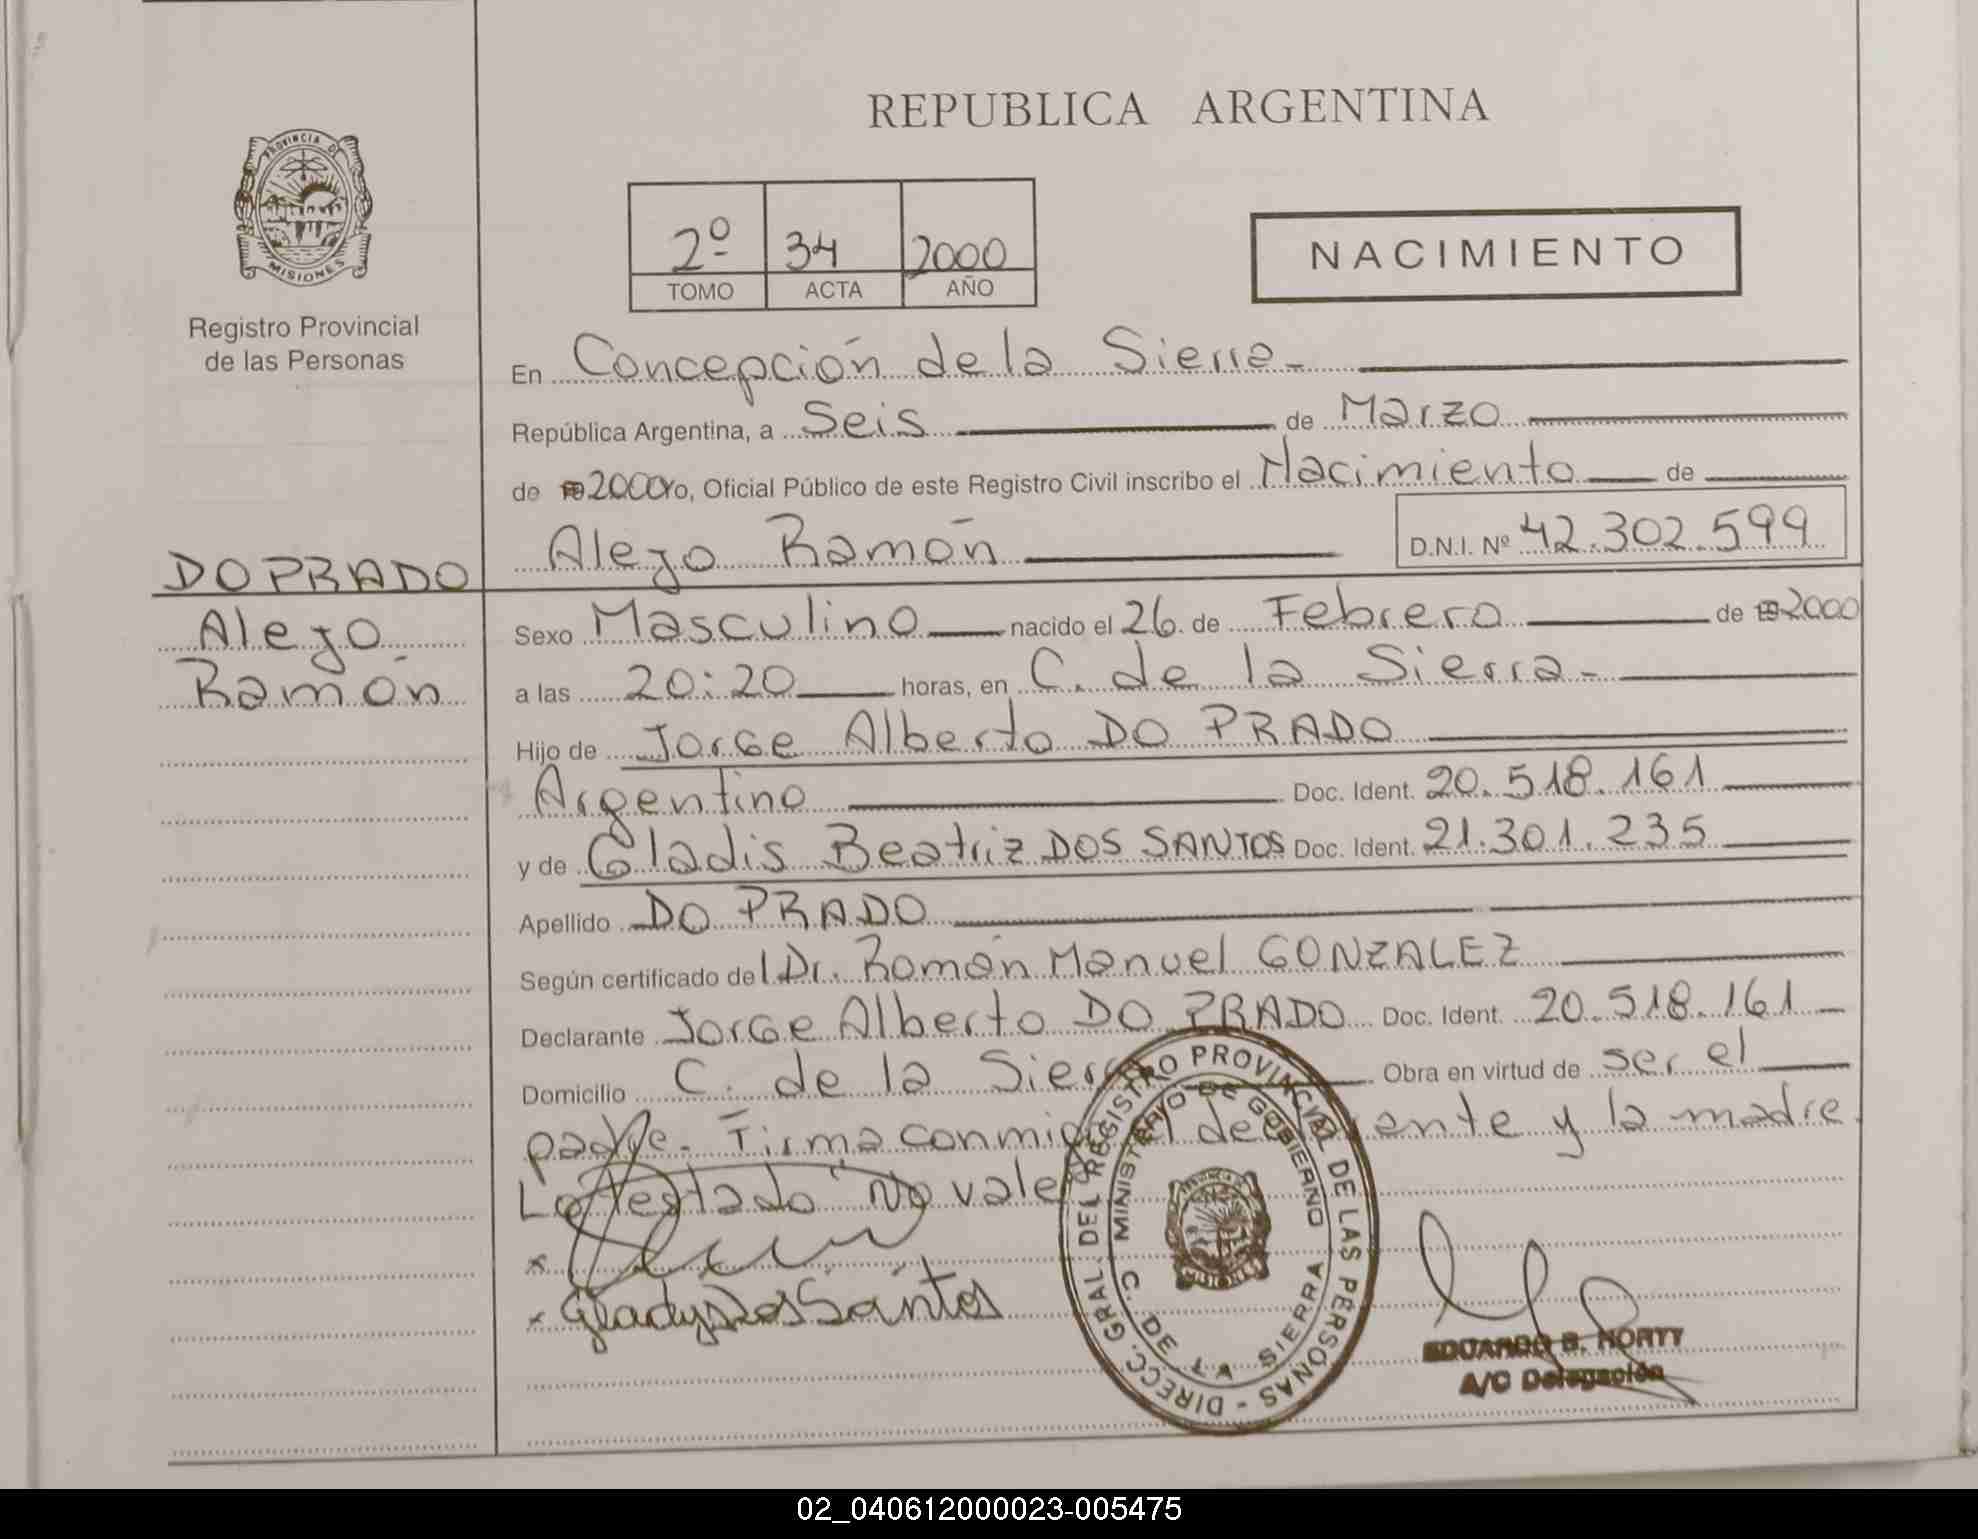 REPUBLICA ARGENTINA
PROVINCIA D
MISIONES
Registro Provincial
de las Personas
2º 34 2000
TOMO ACTA AÑO
NACIMIENTO
En Concepción de la Sierra-
República Argentina, a Seis de Marzo
de 2000 Yo, Oficial Público de este Registro Civil inscribo el Nacimiento de
Alejo Ramón D.N.I. Nº 42.302.599
DO PRADO
Alejo
Ramón
Sexo Masculino nacido el 26 de Febrero de 2000
a las 20:20 horas, en C. de la Sierra-
Hijo de Jorge Alberto DO PRADO
Argentino Doc. Ident. 20.518.161
y de Gladis Beatriz DOS SANTOS Doc. Ident. 21.301.235
Apellido DO PRADO
Según certificado del Dr. Román Manuel GONZALEZ
Declarante Jorge Alberto DO PRADO Doc. Ident. 20.518.161
Domicilio C. de la Sierra Obra en virtud de ser el
padre. Firma conmigo el declarente y la madre.
Lo testado "No vale"
x
x Gladys Dos Santos
DIRECC. GRAL. DEL REGISTRO PROVINCIAL DE LAS PERSONAS -
MINISTERIO DE GOBIERNO
C. DE LA SIERRA
MISIONES
EDUARDO B. NORTY
A/C Delegación
02_040612000023-005475